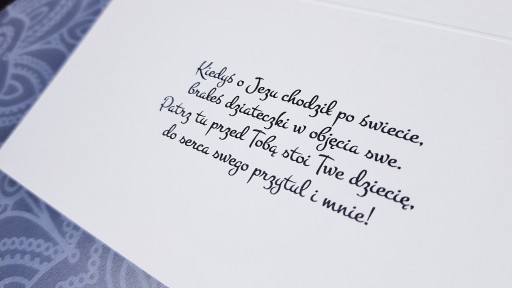 Kiedyś o Jezu chodził po świecie,
brałeś dziateczki w objęcia swe.
Patrz tu przed Tobą stoi Twe dziecię,
do serca swego przytul i mnie!